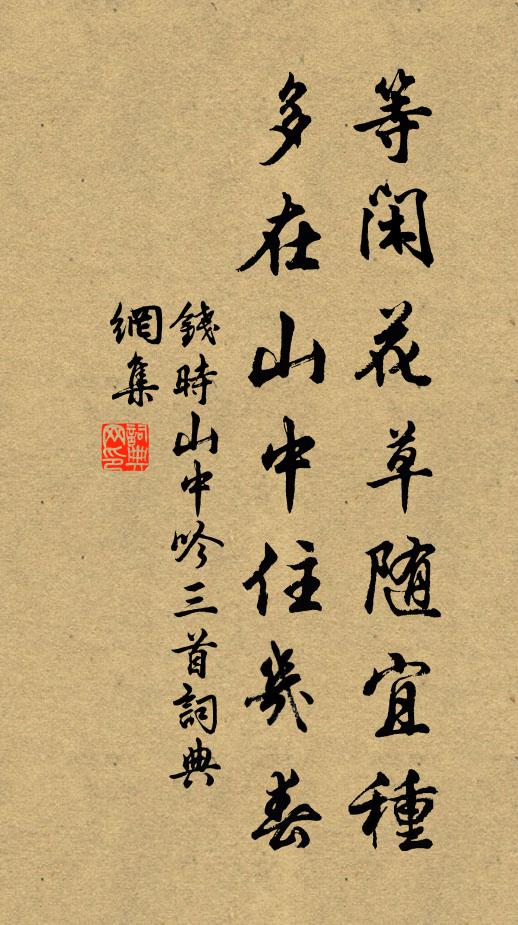 等閑花草随宜種
多在山中住幾春
錢時山中吟三首詞典
網集
詞典网印